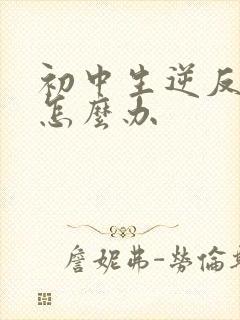 初中生逆反
怎麼办
詹妮弗-勞倫斯